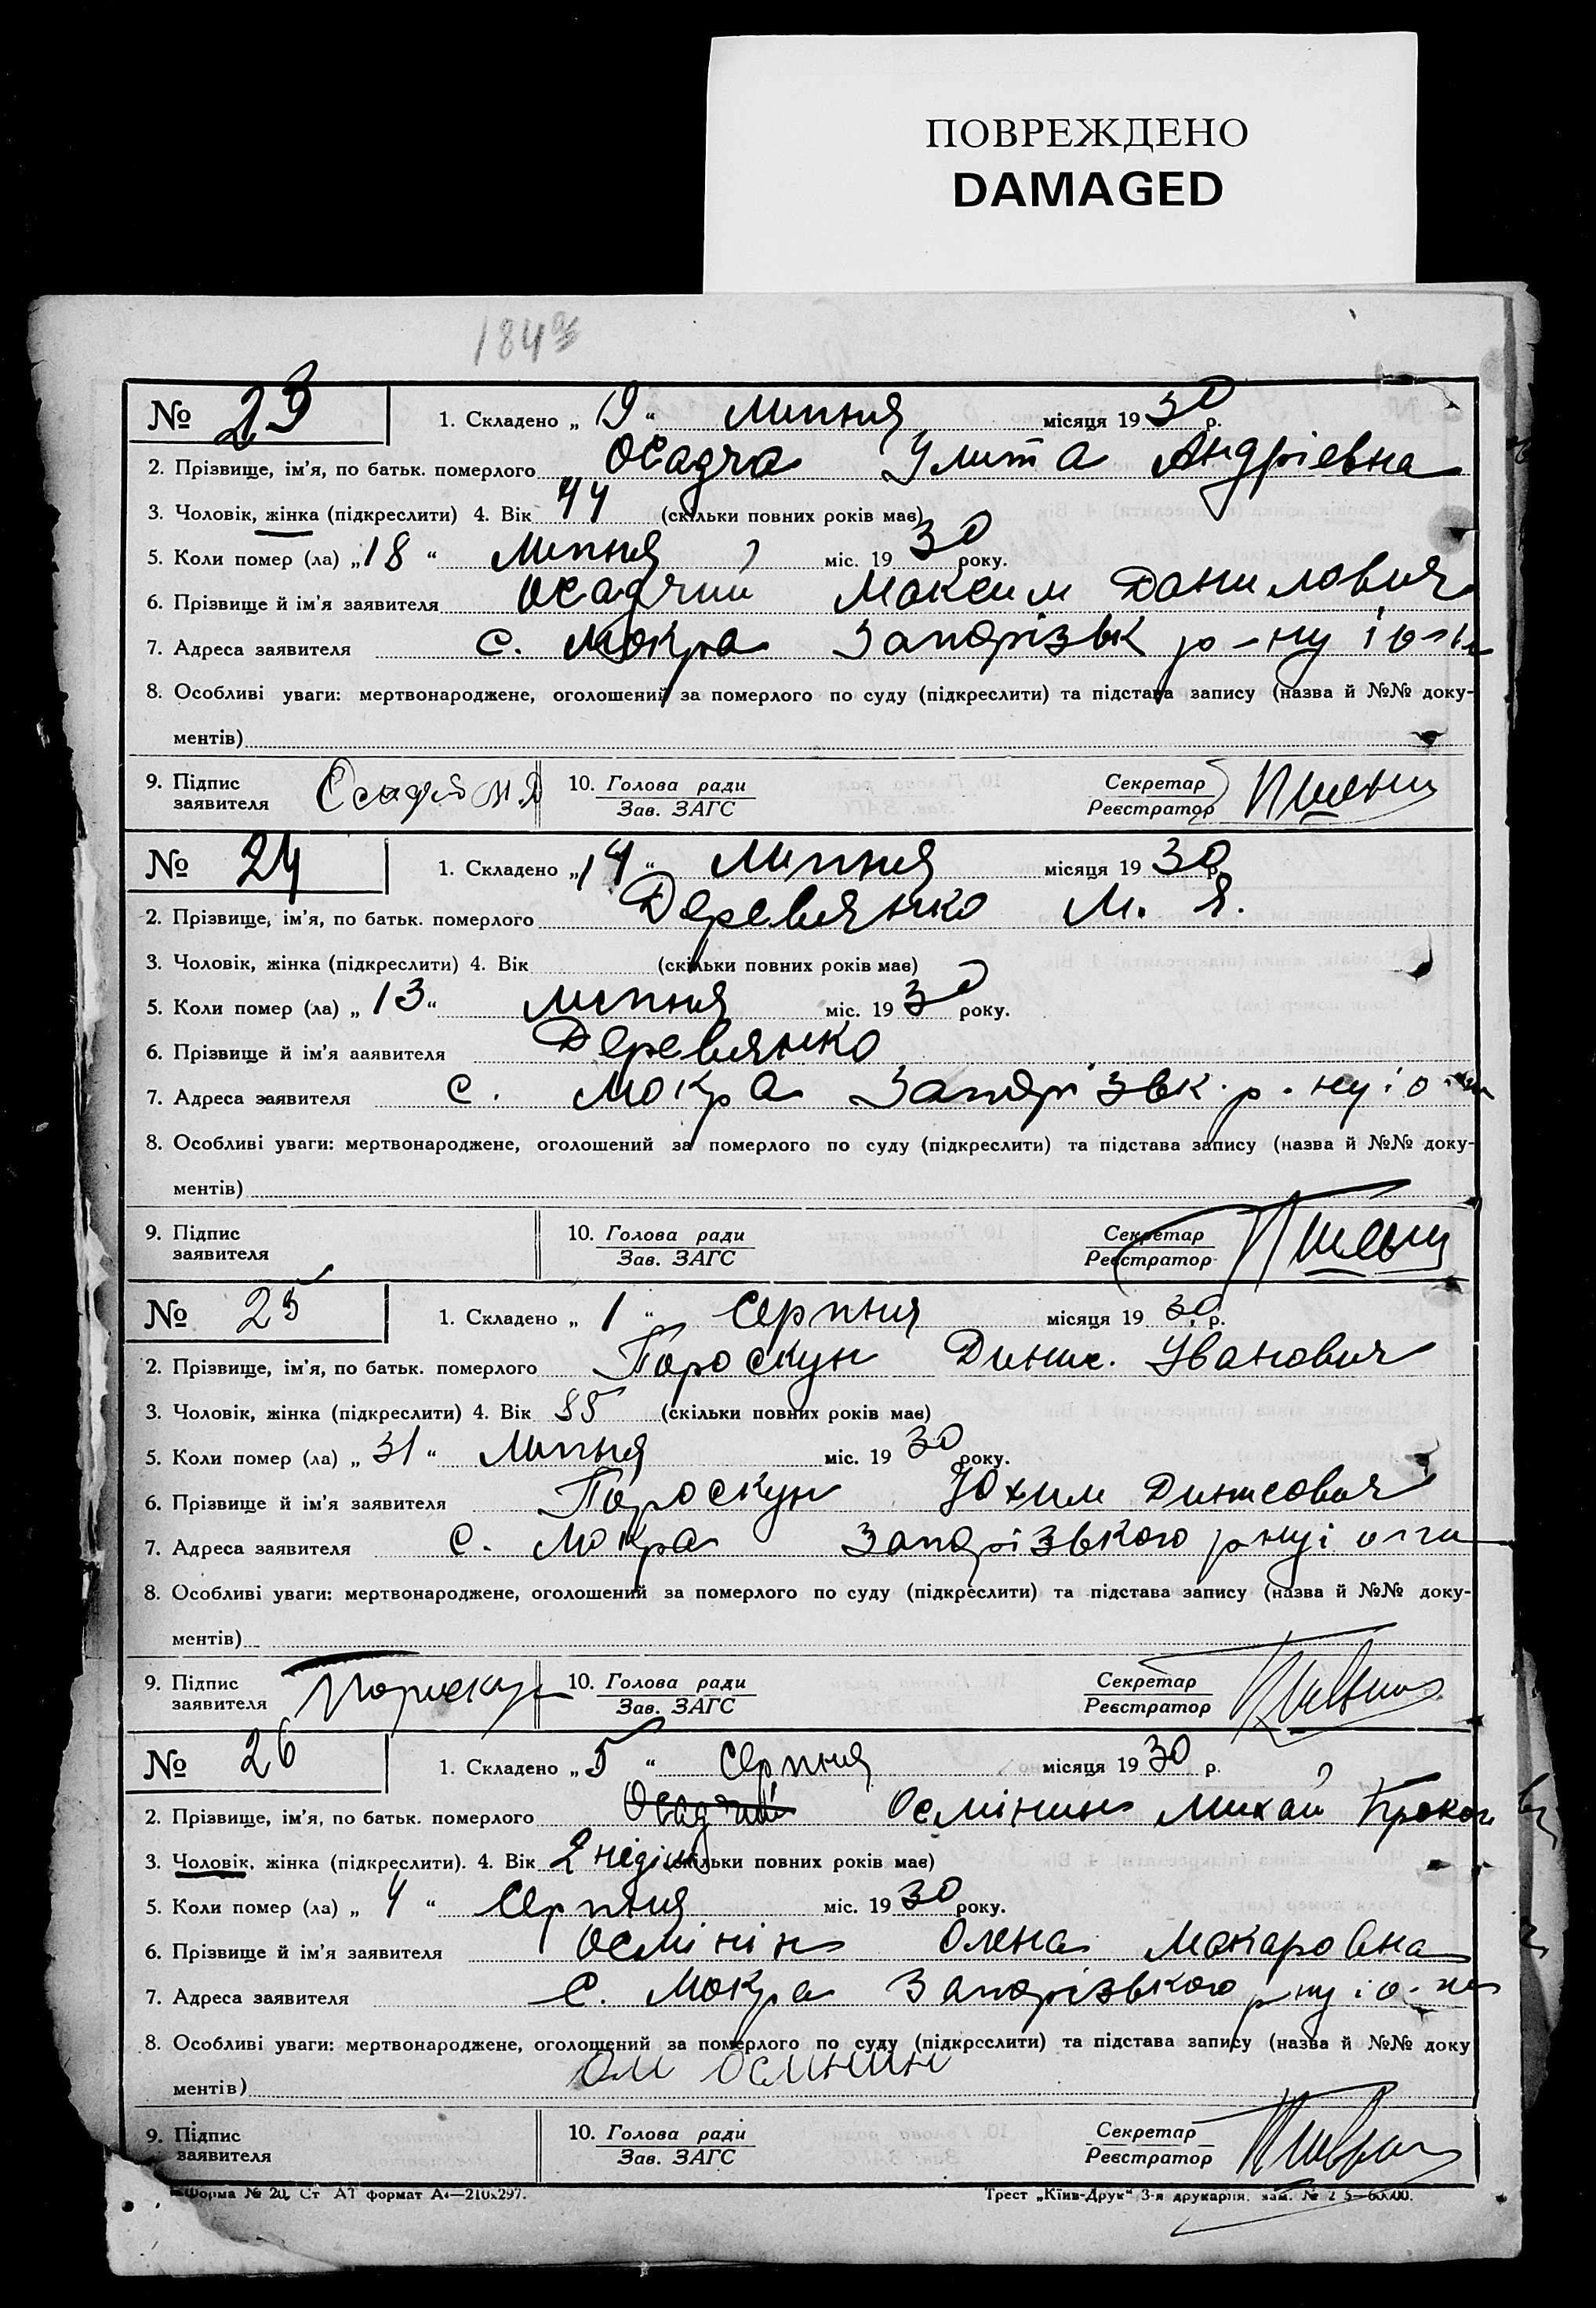 ПОВРЕЖДЕНО
DAMAGED
184
№ 23 1. Складено „ 19 “ Липня місяця 19 30 р.
2. Прізвище, ім’я, по батьк. померлого Осадча Улита Андріевна
3. Чоловік, жінка (підкреслити) 4. Вік 44 (скільки повних років має)
5. Коли помер (ла) „ 18 “ Липня міс. 19 30 року.
6. Прізвище й ім’я заявителя Осадчий Максим Данилович
7. Адреса заявителя с. Мокра Запорізьк р-ну і
8. Особливі уваги: мертвонароджене, оголошений за померлого по суду (підкреслити) та підстава запису (назва й №№ доку-
ментів)
9. Підпис заявителя 10. Голова ради Секретар
Зав. ЗАГС Реєстратор
№ 24 1. Складено „ 14 “ Липня місяця 19 30 р.
2. Прізвище, ім’я, по батьк. померлого Деревянко М. Я.
3. Чоловік, жінка (підкреслити) 4. Вік (скільки повних років має)
5. Коли помер (ла) „ 13 “ Липня міс. 19 30 року.
6. Прізвище й ім’я ааявителя Деревянко
7. Адреса заявителя с. Мокра Запорізьк. р-ну і
8. Особливі уваги: мертвонароджене, оголошений за померлого по суду (підкреслити) та підстава запису (назва й №№ доку-
ментів)
9. Підпис заявителя 10. Голова ради Секретар
Зав. ЗАГС Реєстратор
№ 25 1. Складено „ 1 “ Серпня місяця 19 30 р.
2. Прізвище, ім’я, по батьк. померлого Пороскун Динис. Уванович
3. Чоловік, жінка (підкреслити) 4. Вік (скільки повних років має)
5. Коли помер (ла) „ 31 “ Липня міс. 19 30 року.
6. Прізвище й ім’я заявителя Пороскун Юхим Динисович
7. Адреса заявителя с. Мокра Запорізького р-ну і
8. Особливі уваги: мертвонароджене, оголошений за померлого по суду (підкреслити) та підстава запису (назва й №№ доку-
ментів)
9. Підпис заявителя Пороскун 10. Голова ради Секретар
Зав. ЗАГС Реєстратор
№ 26 1. Складено „ 5 “ Серпня місяця 19 30 р.
2. Прізвище, ім’я, по батьк. померлого Осадчий Осмінин Михай
3. Чоловік, жінка (підкреслити). 4. Вік 2 неділі (скільки повних років має)
5. Коли помер (ла) „ 4 “ Серпня міс. 19 30 року.
6. Прізвище й ім’я заявителя Осмінін Олена Макаровна
7. Адреса заявителя с. Мокра Запорізького р-ну і
8. Особливі уваги: мертвонароджене, оголошений за померлого по суду (підкреслити) та підстава запису (назва й №№ доку
ментів)
9. Підпис заявителя 10. Голова ради Секретар
Зав. ЗАГС Реєстратор
Форма № 20, Ст А1 формат А4—210x297. Трест „Київ-Друк“ 3-я друкарня.